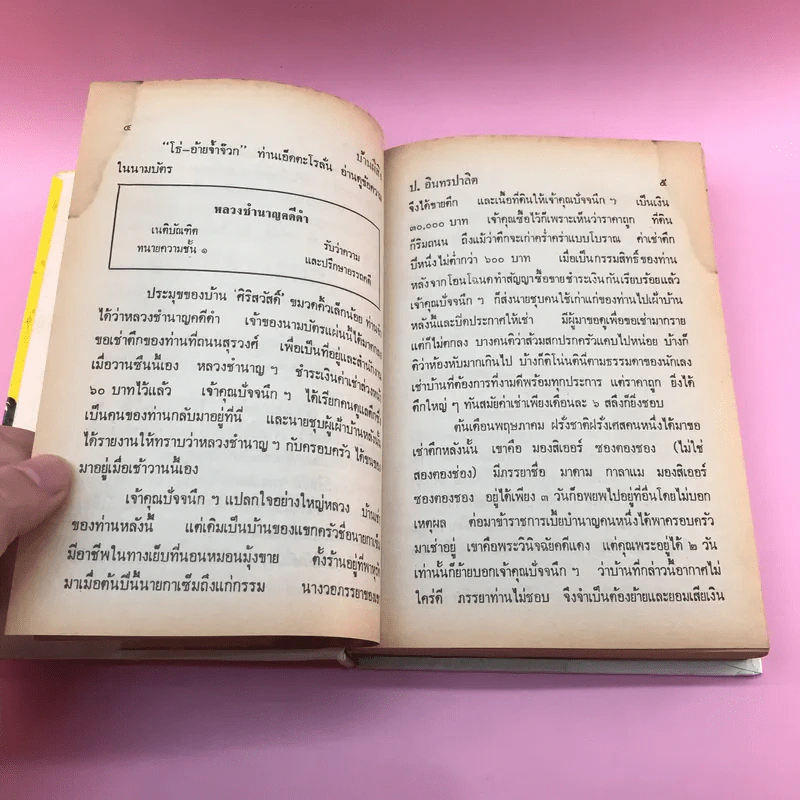 ๔
บ้านผีสิง
"โธ่-อ้ายจ้ำจ๊วก" ท่านเอ็ดตะโรลั่น อ่านดูข้อความ
ในนามบัตร
หลวงชำนาญคดีดำ
เนติบัณฑิต
ทนายความชั้น ๑
รับว่าความ
และปรึกษาอรรถคดี
ประมุขของบ้าน 'ศิริสวัสดิ์' ขมวดคิ้วเล็กน้อย ท่านจำ
ได้ว่าหลวงชำนาญคดีดำ เจ้าของนามบัตรแผ่นนี้ได้มาตกลง
ขอเช่าตึกของท่านที่ถนนสุรวงศ์ เพื่อเป็นที่อยู่และสำนักงาน
เมื่อวานซืนนี้เอง หลวงชำนาญ ฯ ชำระเงินค่าเช่าล่วงหน้า
๖๐ บาทไว้แล้ว เจ้าคุณปัจจนึก ฯ ได้เรียกคนดูแลตึกซึ่ง
เป็นคนของท่านกลับมาอยู่ที่นี่ และนายชุบผู้เฝ้าบ้านหลังนั้น
ได้รายงานให้ทราบว่าหลวงชำนาญ ฯ กับครอบครัว ได้ขนของ
มาอยู่เมื่อเช้าวานนี้เอง
เจ้าคุณปัจจนึก ฯ แปลกใจอย่างใหญ่หลวง บ้านเช่า
ของท่านหลังนี้ แต่เดิมเป็นบ้านของแขกครัวชื่อนายกาเซ็ม
มีอาชีพในทางเย็บที่นอนหมอนมุ้งขาย ตั้งร้านอยู่ที่พาหุรัด
มาเมื่อต้นปีนี้นายกาเซ็มถึงแก่กรรม นางวอภรรยาของเขา
ป. อินทรปาลิต
๕
จึงได้ขายตึก และเนื้อที่ดินให้เจ้าคุณปัจจนึก ฯ เป็นเงิน
๓๐,๐๐๐ บาท เจ้าคุณซื้อไว้ก็เพราะเห็นว่าราคาถูก ที่ดิน
ก็ริมถนน ถึงแม้ว่าตึกจะเก่าคร่ำคร่าแบบโบราณ ค่าเช่าตึก
ปีหนึ่งไม่ต่ำกว่า ๖๐๐ บาท เมื่อเป็นกรรมสิทธิ์ของท่าน
หลังจากโอนโฉนดทำสัญญาซื้อขายชำระเงินกันเรียบร้อยแล้ว
เจ้าคุณปัจจนึก ฯ ก็ส่งนายชุบคนใช้เก่าแก่ของท่านไปเฝ้าบ้าน
หลังนี้และปิดประกาศให้เช่า มีผู้มาขอดูเพื่อขอเช่ามากราย
แต่ก็ไม่ตกลง บางคนติว่าส้วมสกปรกครัวแคบไปหน่อย บ้างก็
ติว่าห้องหับมากเกินไป บ้างก็ติโน่นตินี่ตามธรรมดาของนักเลง
เช่าบ้านที่ต้องการที่งามดีพร้อมทุกประการ แต่ราคาถูก ยิ่งได้
ตึกใหญ่ ๆ ทันสมัยค่าเช่าเพียงเดือนละ ๖ สลึงก็ยิ่งชอบ
ต้นเดือนพฤษภาคม ฝรั่งชาติฝรั่งเศสคนหนึ่งได้มาขอ
เช่าตึกหลังนั้น เขาคือ มองสิเออร์ ซองตองซอง (ไม่ใช่
สองตองช่อง) มีภรรยาชื่อ มาดาม กาลาแม มองสิเออร์
ซองตองซอง อยู่ได้เพียง ๓ วันก็อพยพไปอยู่ที่อื่นโดยไม่บอก
เหตุผล ต่อมาข้าราชการเบี้ยบำนาญคนหนึ่งได้พาครอบครัว
มาเช่าอยู่ เขาคือพระวินิจฉัยคดีแดง แต่คุณพระอยู่ได้ ๒ วัน
เท่านั้นก็ย้ายบอกเจ้าคุณปัจจนึก ฯ ว่าบ้านที่กล่าวนี้อากาศไม่
ใคร่ดี ภรรยาท่านไม่ชอบ จึงจำเป็นต้องย้ายและยอมเสียเงิน